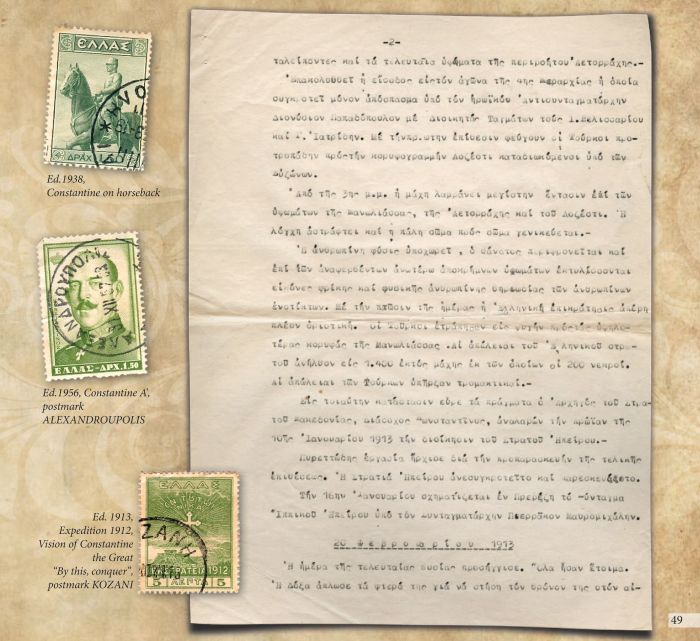 ΕΛΛΑΣ
ΔΡΑΧ
Ed.1938,
Constantine on horseback
ΑΛΕΞΑΝΔΡΟΥΠΟΛΙΣ
ΕΛΛΑΣ-ΔΡΧ.1,50
Ed.1956, Constantine A',
postmark
ALEXANDROUPOLIS
ΕΛΛΑΣ
ΕΝ ΤΟΥΤΩ
ΝΙΚΑ
ΖΑΝΗ
ΕΚΣΤΡΑΤΕΙΑ 1912
5 ΛΕΠΤΑ 5
Ed. 1913,
Expedition 1912,
Vision of Constantine
the Great
"By this, conquer",
postmark KOZANI
-2-
ταλείποντες καί τά τελευταῖα ὑψώματα τῆς περιφήτου Ἀετορράχης.-
Ἐπακολουθεῖ ἡ εἴσοδος εἰς τόν ἀγῶνα τῆς 4ης Μεραρχίας ἡ ὁποία
συγκροτεῖ μόνον ἀπόσπασμα ὑπό τόν ἡρωϊκόν Ἀντισυνταγματάρχην
Διονύσιον Παπαδόπουλον μέ Διοικητάς Ταγμάτων τούς Ι.Βελισσαρίου
καί Γ.Ἰατρίδην. Μέ τήν πρώτην ἐπίθεσιν φεύγουν οἱ Τοῦρκοι προ-
τροπάδην πρός τήν κορυφογραμμήν Λοζέστι καταδιωκόμενοι ὑπό τῶν
Εὐζώνων.
Ἀπό τῆς 3ης μ.μ. ἡ μάχη λαμβάνει μεγίστην ἔντασιν ἐπί τῶν
ὑψωμάτων τῆς Μανωλιάσσας, τῆς Ἀετορράχης καί τοῦ Λοζέστι. Ἡ
λόγχη ἀστράφτει καί ἡ πάλη σῶμα πρός σῶμα γενικεύεται.-
Ἡ ἀνθρωπίνη φύσις ὑποχωρεῖ , ὁ θάνατος περιφρονεῖται καί
ἐπί τῶν ἀναφερθέντων ἀνωτέρω ἀποκρήμνων ὑψωμάτων ἐκτυλίσσονται
εἰκόνες φρίκης καί φυσικῆς ἀνθρωπίνης θηριωδίας τῶν ἀνθρωπίνων
ἐνστίκτων. Μέ τήν πτῶσιν τῆς ἡμέρας ἡ Ἑλληνική ἐπικράτησις
πλέον ὁριστική. Οἱ Τοῦρκοι ἐτράπησαν εἰς φυγήν πρός τάς ὑψηλο-
τέρας κορυφάς τῆς Μανωλιάσσας. Αἱ ἀπώλειαι τοῦ Ἑλληνικοῦ στρα-
τοῦ ἀνῆλθον εἰς 1.400 ἐκτός μάχης ἐκ τῶν ὁποίων οἱ 200 νεκροί.
Αἱ ἀπώλειαι τῶν Τούρκων ὑπῆρξαν τρομακτικαί.-
Εἰς τοιαύτην κατάστασιν εὗρε τά πράγματα ὁ Ἀρχηγός τοῦ Στρα-
τοῦ Μακεδονίας, Διάδοχος Κωνσταντῖνος, ἀναλαβών τήν πρωΐαν τῆς
10ης Ἰανουαρίου 1913 τήν διοίκησιν τοῦ Στρατοῦ Ἠπείρου.-
Πυρετώδης ἐργασία ἤρχισε διά τήν προπαρασκευήν τῆς τελικῆς
ἐπιθέσεως. Ἡ Στρατιά Ἠπείρου ἀνεσυγκροτεῖτο καί παρεσκευάζετο.
Τήν 16ην Ἰανουαρίου σχηματίζεται ἐν Πρεβέζῃ τό Σύνταγμα
Ἱππικοῦ Ἠπείρου ὑπό τόν Συνταγματάρχην Πιερράκον Μαυρομιχάλην.
20 Φεβρουαρίου 1913
Ἡ ἡμέρα τῆς τελευταίας θυσίας προσήγγισε. Ὅλα ἦσαν ἕτοιμα.
Ἡ Δόξα ἅπλωσε τά φτερά της γιά νά στήσῃ τόν θρόνον της στόν αἰ-
49